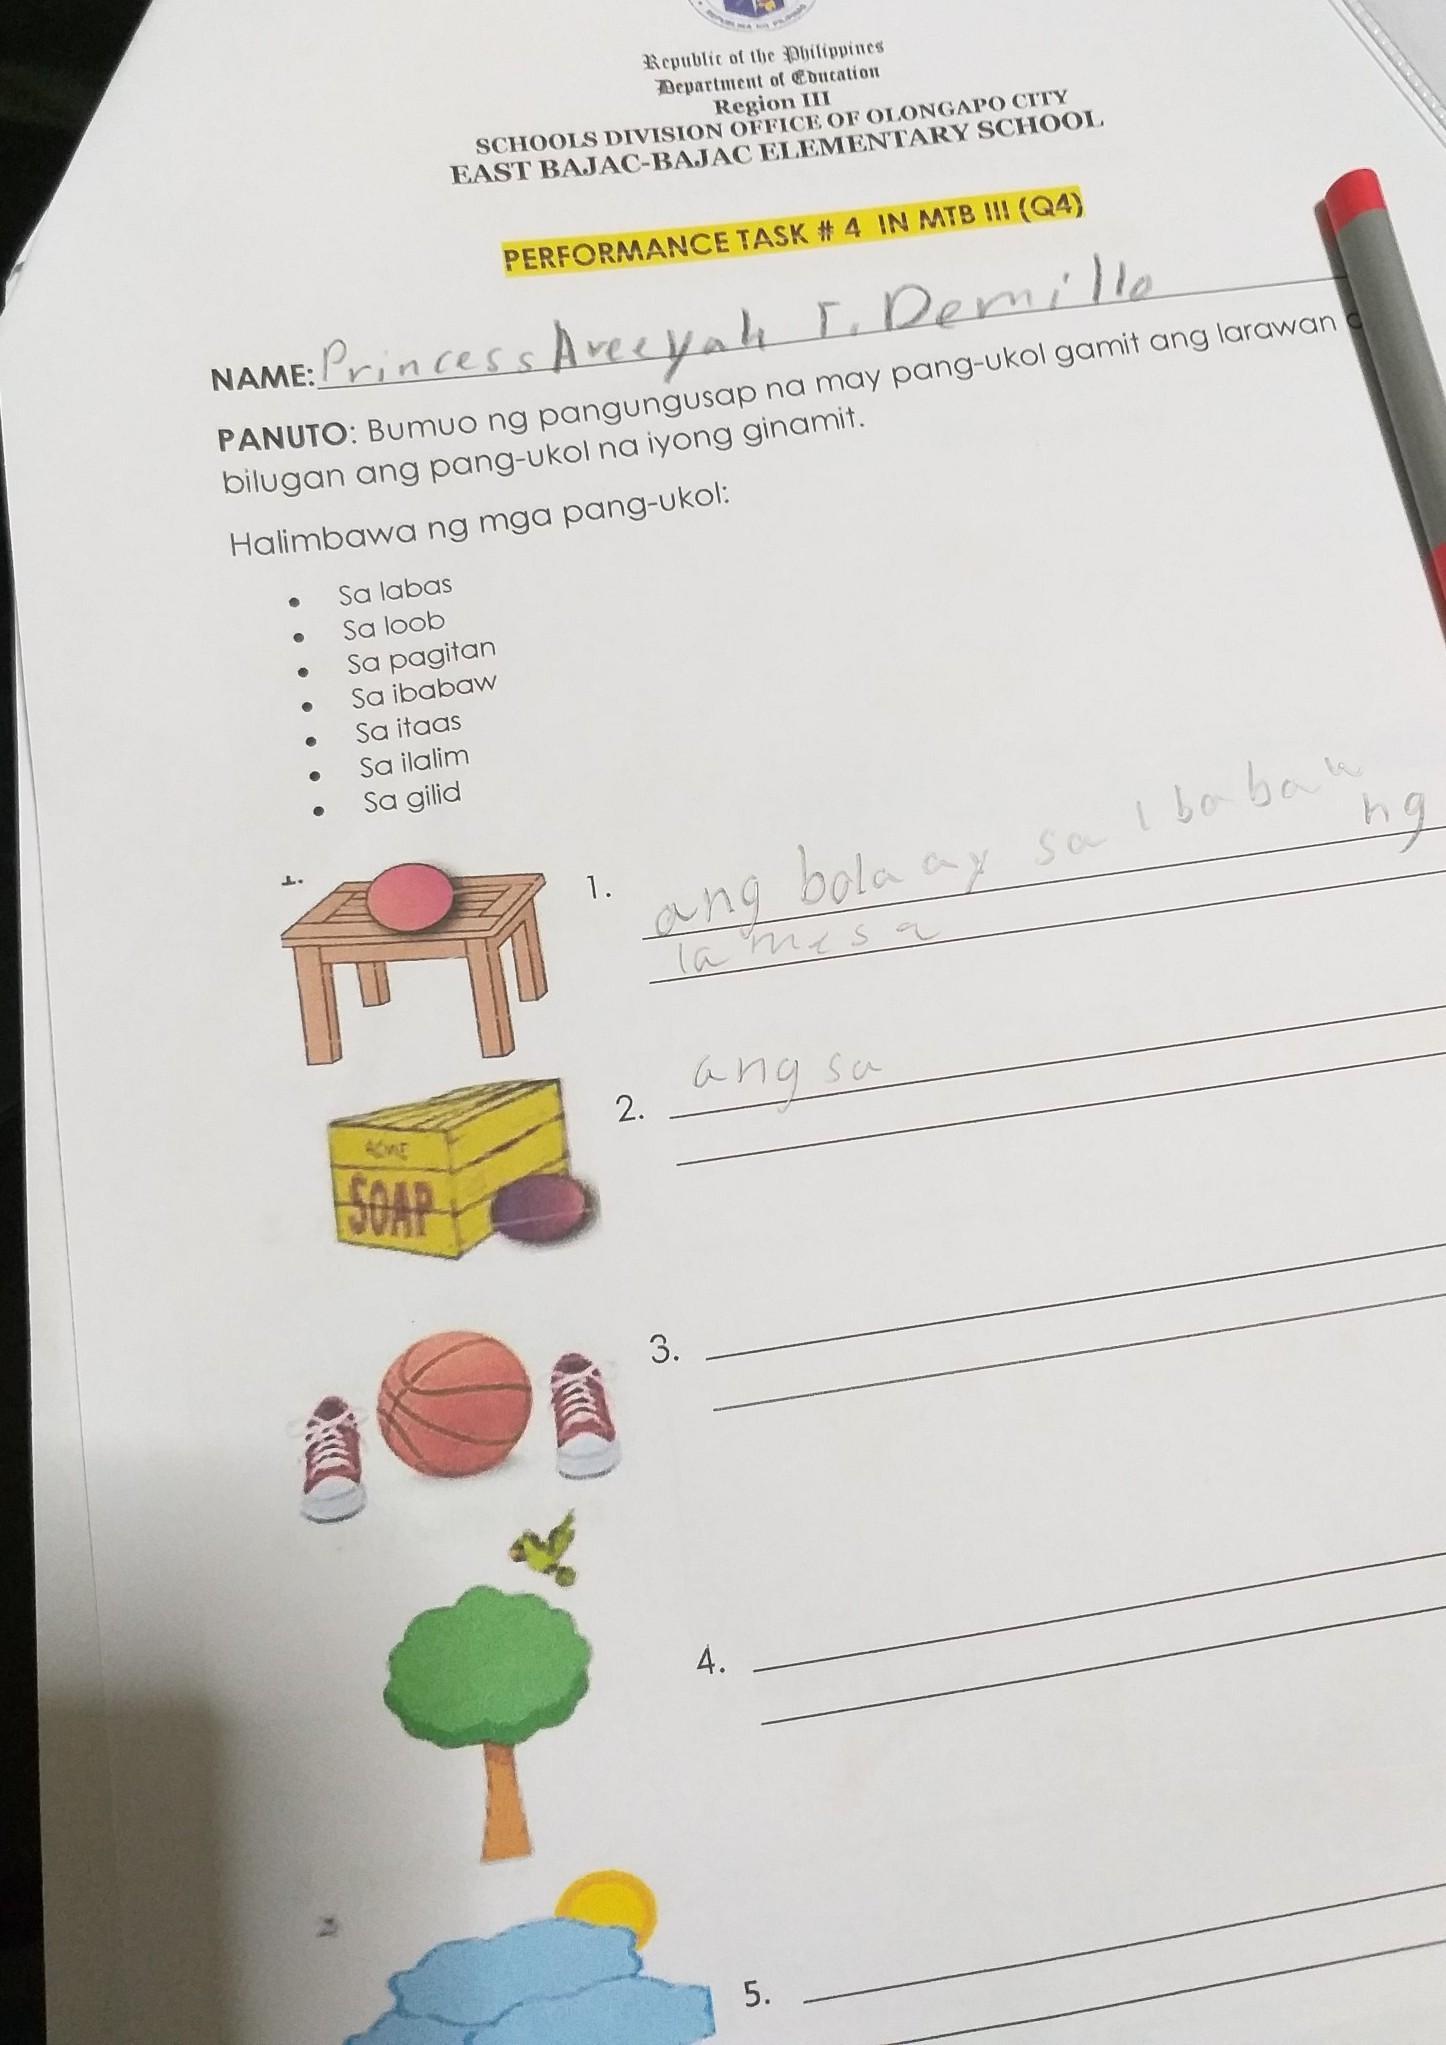 Republic of the Philippines
Department of Education
Region III
SCHOOLS DIVISION OFFICE OF OLONGAPO CITY
EAST BAJAC-BAJAC ELEMENTARY SCHOOL
PERFORMANCE TASK # 4 IN MTB III (Q4)
NAME: Princess Areeyah T. Demillo
PANUTO: Bumuo ng pangungusap na may pang-ukol gamit ang larawan
bilugan ang pang-ukol na iyong ginamit.
Halimbawa ng mga pang-ukol:
• Sa labas
• Sa loob
• Sa pagitan
• Sa ibabaw
• Sa itaas
• Sa ilalim
• Sa gilid
1.
1. ang bola ay sa ibabaw ng
la mesa
ACME
SOAP
2. ang sa
3.
4.
5.